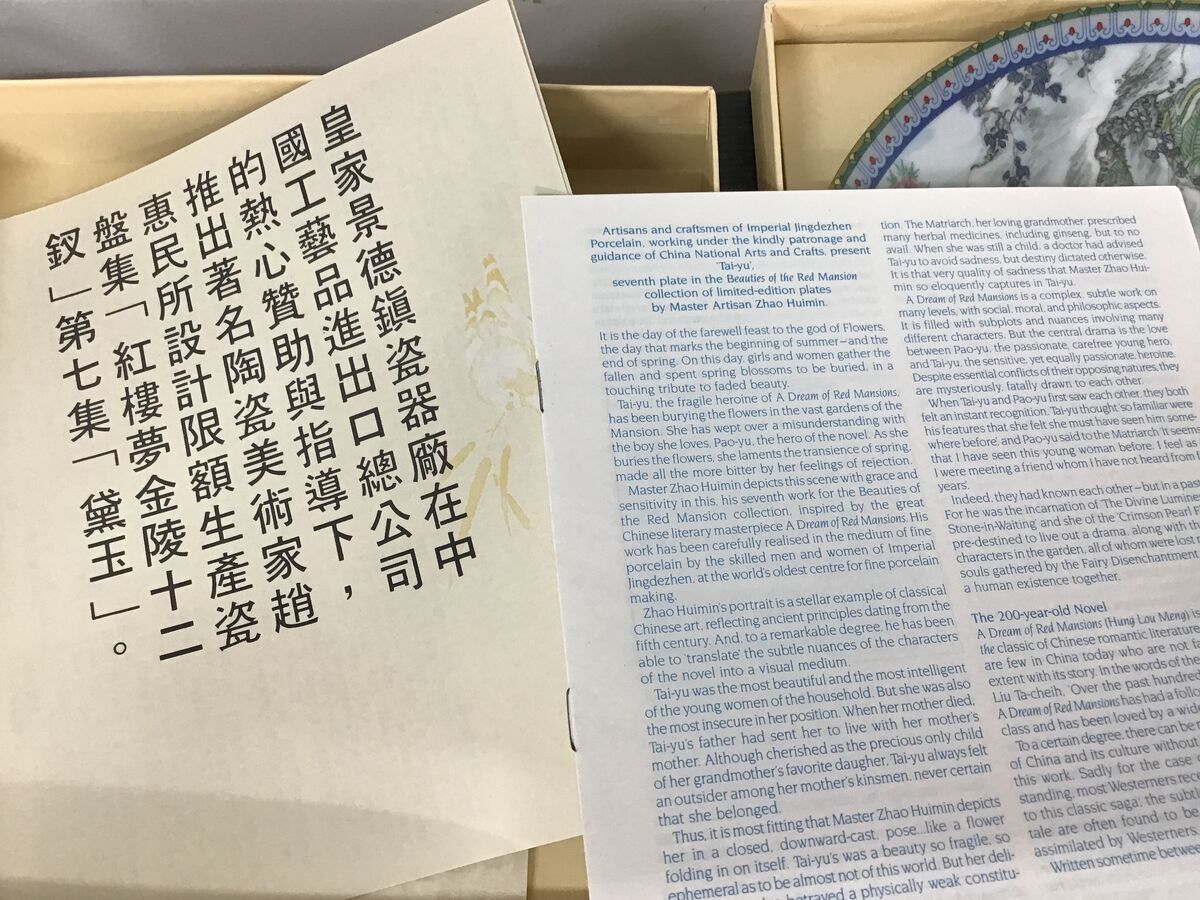 皇家景德鎮瓷器廠在中
國工藝品進出口總公司
的熱心贊助與指導下，
推出著名陶瓷美術家趙
惠民所設計限額生產瓷
盤集「紅樓夢金陵十二
釵」第七集「黛玉」。
Artisans and craftsmen of Imperial Jingdezhen
Porcelain, working under the kindly patronage and
guidance of China National Arts and Crafts, present
'Tai-yu',
seventh plate in the Beauties of the Red Mansion
collection of limited-edition plates
by Master Artisan Zhao Huimin.
It is the day of the farewell feast to the god of Flowers,
the day that marks the beginning of summer—and the
end of spring. On this day, girls and women gather the
fallen and spent spring blossoms to be buried, in a
touching tribute to faded beauty.
Tai-yu, the fragile heroine of A Dream of Red Mansions,
has been burying the flowers in the vast gardens of the
Mansion. She has wept over a misunderstanding with
the boy she loves, Pao-yu, the hero of the novel. As she
buries the flowers, she laments the transience of spring,
made all the more bitter by her feelings of rejection.
Master Zhao Huimin depicts this scene with grace and
sensitivity in this, his seventh work for the Beauties of
the Red Mansion collection, inspired by the great
Chinese literary masterpiece A Dream of Red Mansions. His
work has been carefully realised in the medium of fine
porcelain by the skilled men and women of Imperial
Jingdezhen, at the world's oldest centre for fine porcelain
making.
Zhao Huimin's portrait is a stellar example of classical
Chinese art, reflecting ancient principles dating from the
fifth century. And, to a remarkable degree, he has been
able to 'translate' the subtle nuances of the characters
of the novel into a visual medium.
Tai-yu was the most beautiful and the most intelligent
of the young women of the household. But she was also
the most insecure in her position. When her mother died,
Tai-yu's father had sent her to live with her mother's
mother. Although cherished as the precious only child
of her grandmother's favorite daugher, Tai-yu always felt
an outsider among her mother's kinsmen, never certain
that she belonged.
Thus, it is most fitting that Master Zhao Huimin depicts
her in a closed, downward-cast, pose...like a flower
folding in on itself. Tai-yu's was a beauty so fragile, so
ephemeral as to be almost not of this world. But her deli-
betrayed a physically weak constitu-
tion. The Matriarch, her loving grandmother, prescribed
many herbal medicines, including ginseng, but to no
avail. When she was still a child, a doctor had advised
Tai-yu to avoid sadness, but destiny dictated otherwise.
It is that very quality of sadness that Master Zhao Hui-
min so eloquently captures in Tai-yu.
A Dream of Red Mansions is a complex, subtle work on
many levels, with social, moral, and philosophic aspects.
It is filled with subplots and nuances involving many
different characters. But the central drama is the love
between Pao-yu, the passionate, carefree young hero,
and Tai-yu, the sensitive, yet equally passionate, heroine.
Despite essential conflicts of their opposing natures, they
are mysteriously, fatally drawn to each other.
When Tai-yu and Pao-yu first saw each other, they both
felt an instant recognition. Tai-yu thought, so familiar were
his features that she felt she must have seen him some-
where before, and Pao-yu said to the Matriarch 'It seems
that I have seen this young woman before. I feel as
I were meeting a friend whom I have not heard from f
years.
Indeed, they had known each other—but in a past
For he was the incarnation of 'The Divine Lumino
Stone-in-Waiting' and she of the 'Crimson Pearl
pre-destined to live out a drama, along with t
characters in the garden, all of whom were lost
souls gathered by the Fairy Disenchantment
a human existence together.
The 200-year-old Novel
A Dream of Red Mansions (Hung Lou Meng) is
the classic of Chinese romantic literature
are few in China today who are not fa
extent with its story. In the words of the
Liu Ta-cheih, 'Over the past hundred
A Dream of Red Mansions has had a follo
class and has been loved by a wide
To a certain degree, there can be
of China and its culture without
this work. Sadly for the case
standing, most Westerners rec
to this classic saga; the subtl
tale are often found to be
assimilated by Westerners
Written sometime betwee